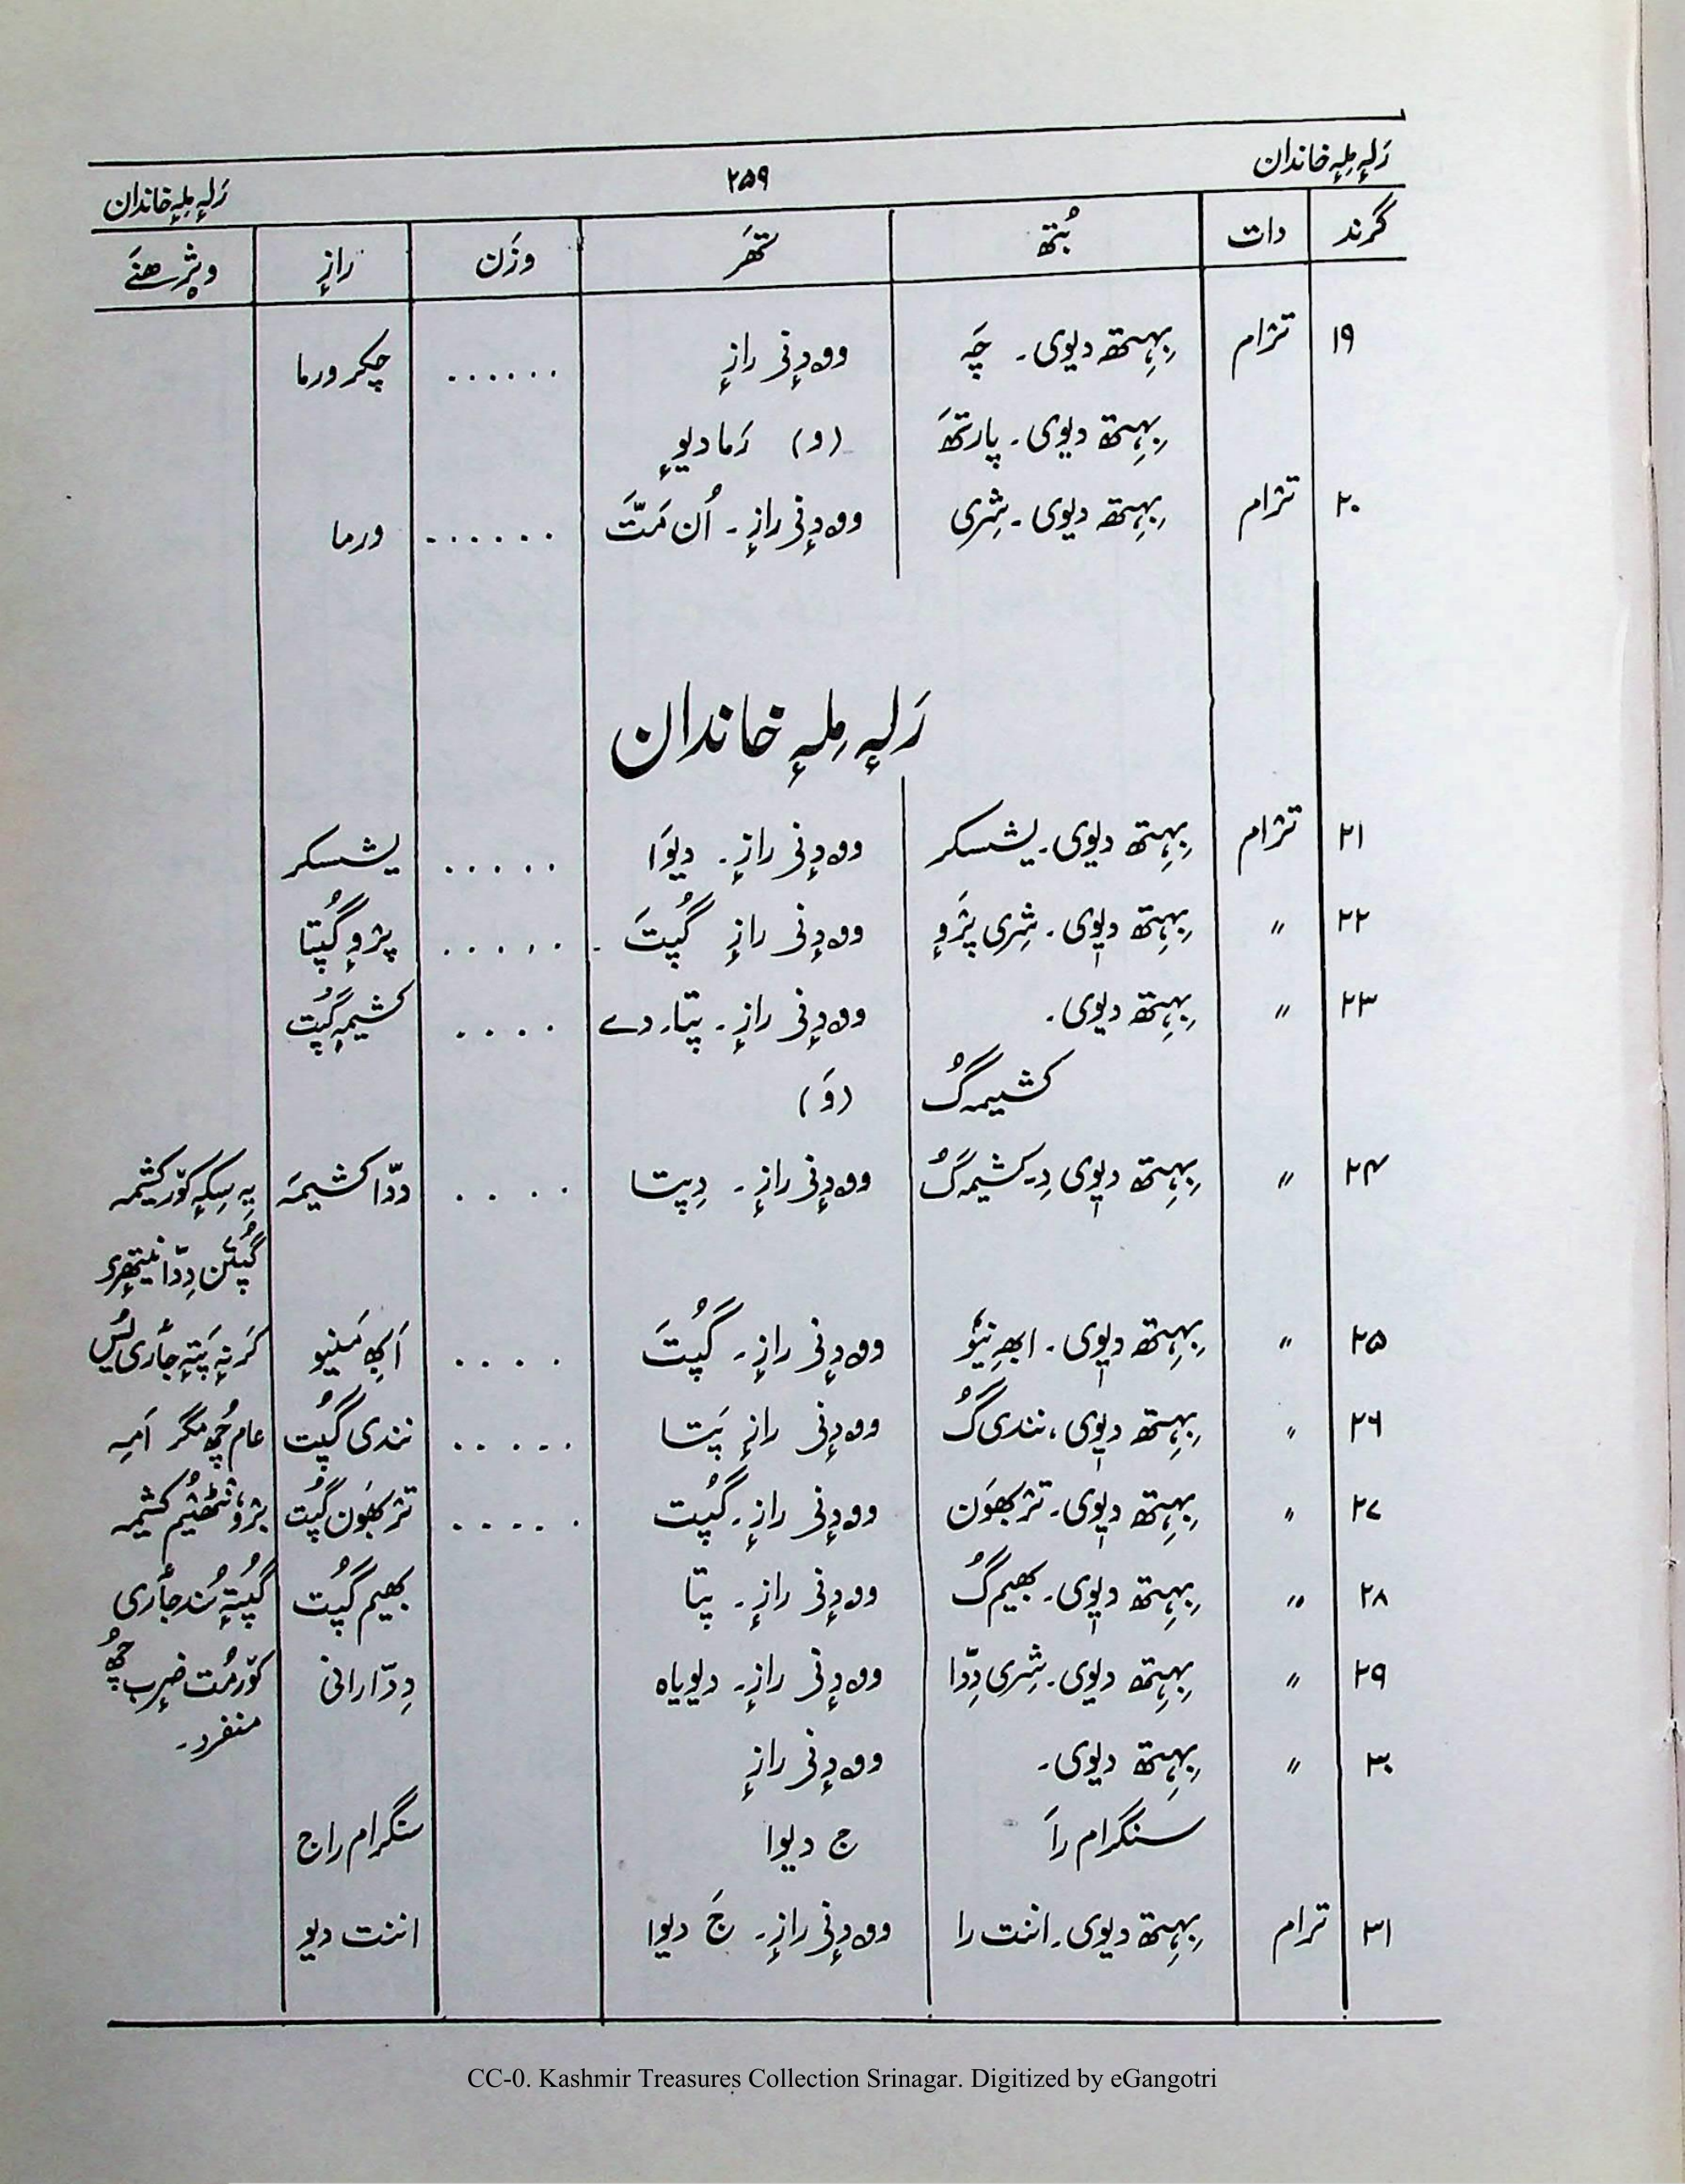 رَلہٕ مِلہٕ خاندان ۲۵۹ رَلہٕ مِلہٕ خاندان
گرند دات بُتھ تھَر وزَن رازٕ
۱۹ ترٛام بِہِتھ دیوی۔ چَہ وودٕنی رازٕ ...... چکر ورما
بِہِتھ دیوی۔ پارتھَ (و) رَما دیوٕ
۲۰ ترٛام بِہِتھ دیوی۔ شِری وودٕنی رازٕ۔ اُن مَتَّ ...... ورما
رَلہٕ مِلہٕ خاندان
۲۱ ترٛام بِہِتھ دیوی۔ یشسکر وودٕنی رازٕ۔ دیوَا ..... یشسکر
۲۲ " بِہِتھ دیوی۔ شِری پرٛوٕ وودٕنی رازٕ گُپتَ ...... پرٛوٕ گُپتا
۲۳ " بِہِتھ دیوی۔ وودٕنی رازٕ۔ پتا۔ دے .... کشیمہٕ گُپت
کشیمہ گُ (وَ)
۲۴ " بِہِتھ دیوی دِ۔ کشیمہ گُ وودٕنی رازٕ۔ دِپتا .... ددّا کشیمہَ یہِ سِکہٕ کوٚر کشیمہ
گُپتَن دِدّا
۲۵ " بِہِتھ دیوی۔ وودٕنی رازٕ۔ گُپتَ .... اَبھِ مَنیو کَرنہٕ پَتہٕ جٲری
۲۶ " بِہِتھ دیوی، نندی گُ وودٕنی رازٕ پَتا ..... نندی گُپت عام چھُ مگر اَمہِ
۲۷ " بِہِتھ دیوی۔ ترٛبھوَن وودٕنی رازٕ۔ گُپت ..... ترٛبھوَن گُپت برٛونٹھیُم کشیمہ
۲۸ " بِہِتھ دیوی۔ بھیم گُ وودٕنی رازٕ۔ پتا بھیم گُپت گُپتہٕ سُند جٲری
۲۹ " بِہِتھ دیوی۔ شِری دِدّا وودٕنی رازٕ۔ دیویاہ دِدّا رانی کوٚرمُت ضرب چھُ
منفرد۔
۳۰ " بِہِتھ دیوی۔ وودٕنی رازٕ
سنگرام راَ ج دیوا سنگرام راج
۳۱ ترام بِہِتھ دیوی۔ اننت را وودٕنی رازٕ۔ جَ دیوا اننت دیو
CC-0. Kashmir Treasures Collection Srinagar. Digitized by eGangotri